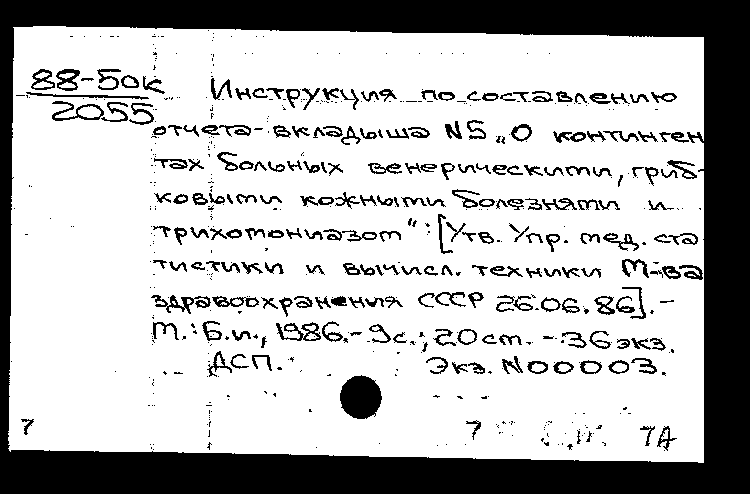 88-50к
2055
Инструкция по составлению
отчета-вкладыша N5 „О континген
тах больных венерическими, гриб-
ковыми кожными болезнями и
трихомониазом“: [Утв. Упр. мед. ста
тистики и вычисл. техники М-ва
здравоохранения СССР 26.06.86]. –
М.: Б.и., 1986. – 9с.; 20см. – 36экз.
ДСП. Экз. N00003.
7 7 7А